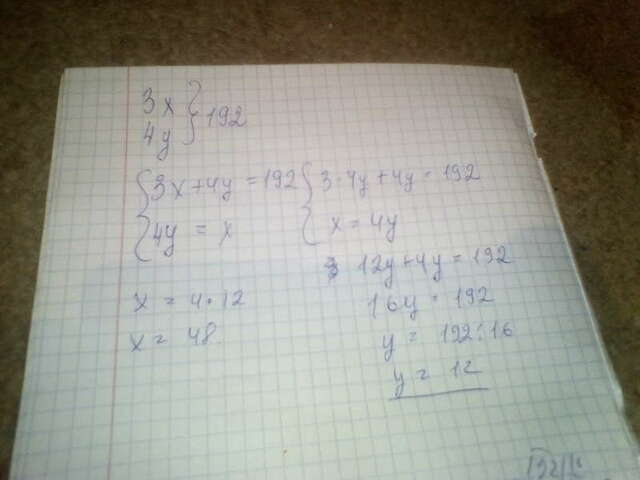 3x
4y } 192
{ 3x + 4y = 192
4y = x
{ 3·4y + 4y = 192
x = 4y
12y + 4y = 192
16y = 192
y = 192 : 16
y = 12
x = 4 · 12
x = 48